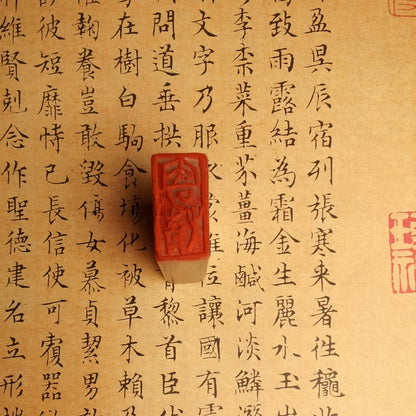 盈昃辰宿列張寒来暑往穐
致雨露結為霜金生麗水玉出
李柰菜重芥薑海鹹河淡鱗
文字乃服衣裳推位讓國有虞
問道垂拱育黎首臣伏
在樹白駒食場化被草木賴及
鞠養豈敢毀傷女慕貞絜男
彼短靡恃己長信使可覆器
維賢剋念作聖德建名立形端